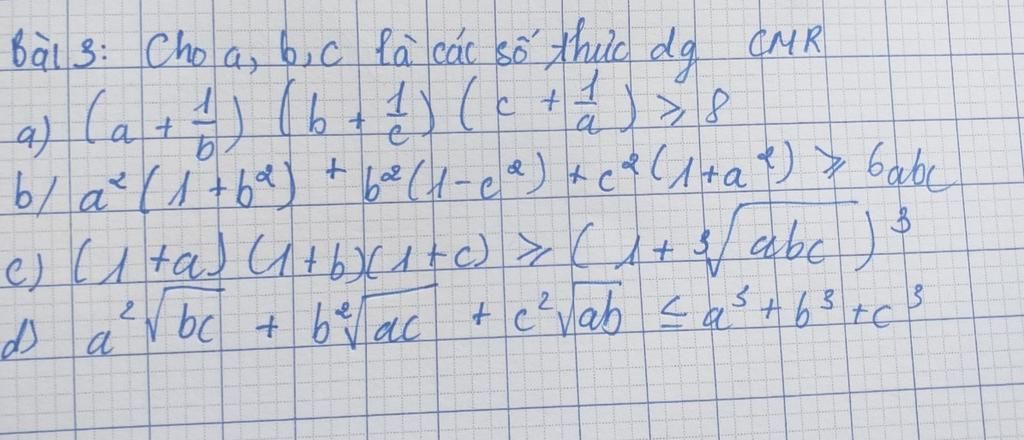 Bài 3: Cho a, b, c là các số thực dg CMR
a) (a + 1/b) (b + 1/c) (c + 1/a) ≥ 8
b/ a²(1+b²) + b²(1-c²) + c²(1+a²) ≥ 6abc
c) (1+a)(1+b)(1+c) ≥ (1 + ∛abc)³
d) a²√bc + b²√ac + c²√ab ≤ a³ + b³ + c³